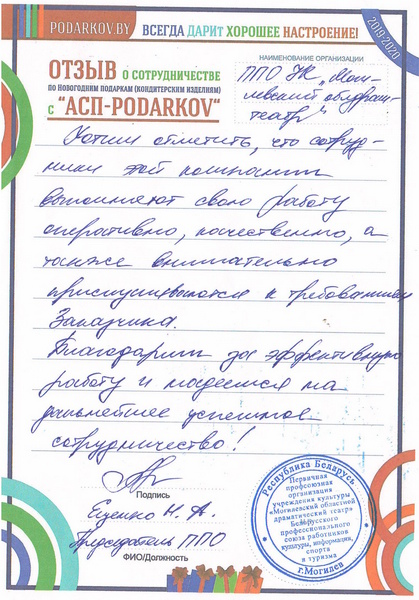 PODARKOV.BY ВСЕГДА ДАРИТ ХОРОШЕЕ НАСТРОЕНИЕ!
2019-2020
ОТЗЫВ О СОТРУДНИЧЕСТВЕ
ПО НОВОГОДНИМ ПОДАРКАМ (КОНДИТЕРСКИМ ИЗДЕЛИЯМ)
С "АСП-PODARKOV"
НАИМЕНОВАНИЕ ОРГАНИЗАЦИИ
ППО УК „Моги-
левский облдрам-
театр"
Хотим отметить, что сотруд-
ники этой компании
выполняют свою работу
оперативно, качественно, а
также внимательно
прислушиваются к требованиям
Заказчика.
Благодарим за эффективную
работу и надеемся на
дальнейшее успешное
сотрудничество!
Подпись
Еценко Н. А.
Председатель ППО
ФИО/Должность
Республика Беларусь
Первичная
профсоюзная
организация
учреждения культуры
«Могилевский областной
драматический театр»
Белорусского
профессионального
союза работников
культуры, информации,
спорта
и туризма
г.Могилев